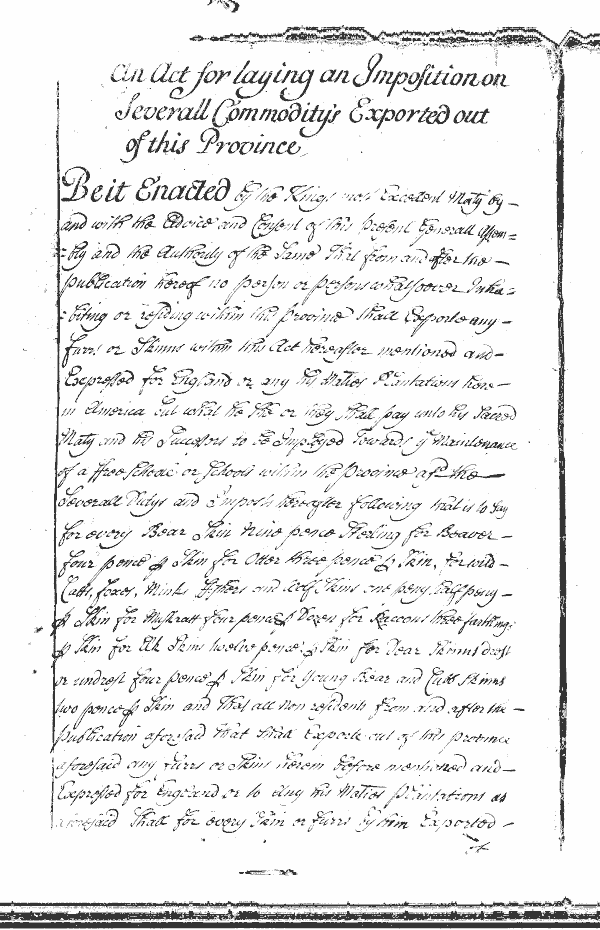 An Act for laying an Imposition on
Severall Commodity's Exported out
of this Province
Be it Enacted by the Kings most Excellent Maty by
and with the Advice and Consent of this present Generall Assem=
=bly and the Authority of the Same That from and after the
publication hereof no person or persons whatsoever Inha=
=biting or residing within this province Shall Exporte any
furrs or Skinns within this Act hereafter mentioned and
Expressed for England or any his Maties Plantations here
in America but what he She or they Shall pay unto his Sacred
Maty and his Successors to be Imployed towards ye Maintenance
of a ffree Schoole or Schools within this province afd the
Severall Dutys and Imposts hereafter following that is to Say
for every Bear Skin Nine pence Sterling for Beaver
four pence p Skin for Otter three pence p Skin, for wild
Catts, foxes, Minks ffishers and Wolf Skins one peny half peny
p Skin for Muskratt four pence p Dozen for Racoons three farthings
p Skin for Elk Skins twelve pence p Skin for Dear Skinns drest
or undrest four pence p Skin for Young Bear and Cubb Skinns
two pence p Skin and that all non residents from and after the
publication aforesaid that Shall Exporte out of this Province
aforesaid any furrs or Skins herein before mentioned and
Expressed for England or to Any his Maties Plantations as
aforesaid Shall for every Skin or furrs by him Exported